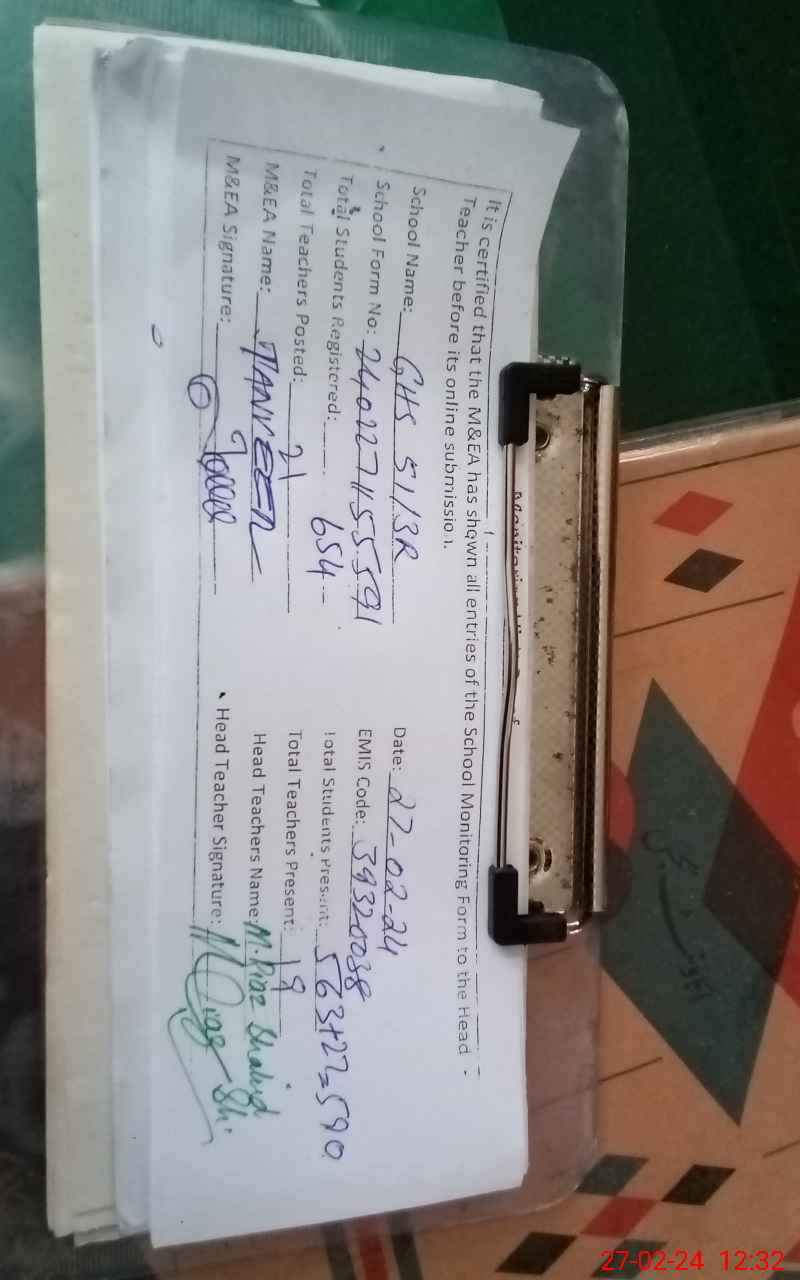 It is certified that the M&EA has shown all entries of the School Monitoring Form to the Head
Teacher before its online submission.
School Name: GHS 51/3R
Date: 27-02-24
School Form No: 2402271155591
EMIS Code: 39320038
Total Students Registered: 654
Total Students Present: 563+27=590
Total Teachers Posted: 21
Total Teachers Present: 19
M&EA Name: TANVEER
Head Teachers Name: M. Riaz Shahid
M&EA Signature:
Head Teacher Signature:
27-02-24 12:32